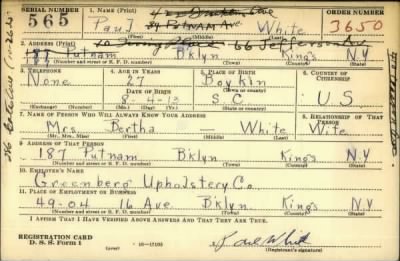 SERIAL NUMBER 1. NAME (Print) ORDER NUMBER
565 Paul White 3650
(First) (Middle) (Last)
2. ADDRESS (Print)
187 Putnam Bklyn Kings N.Y
(Number and street or R. F. D. number) (Town) (County) (State)
3. TELEPHONE 4. AGE IN YEARS 5. PLACE OF BIRTH 6. COUNTRY OF CITIZENSHIP
None 27 Boykin
DATE OF BIRTH (Town or county)
8-4-13 S.C. U S
(Exchange) (Number) (Mo.) (Day) (Yr.) (State or country)
7. NAME OF PERSON WHO WILL ALWAYS KNOW YOUR ADDRESS 8. RELATIONSHIP OF THAT PERSON
Mrs. Bertha — White Wife
(Mr., Mrs., Miss) (First) (Middle) (Last)
9. ADDRESS OF THAT PERSON
187 Putnam Bklyn Kings N.Y
(Number and street or R. F. D. number) (Town) (County) (State)
10. EMPLOYER'S NAME
Greenberg Upholstery Co.
11. PLACE OF EMPLOYMENT OR BUSINESS
49-04 16 Ave Bklyn Kings N.Y
(Number and street or R. F. D. number) (Town) (County) (State)
I AFFIRM THAT I HAVE VERIFIED ABOVE ANSWERS AND THAT THEY ARE TRUE.
REGISTRATION CARD
D. S. S. Form 1 Paul White
(Registrant's signature)